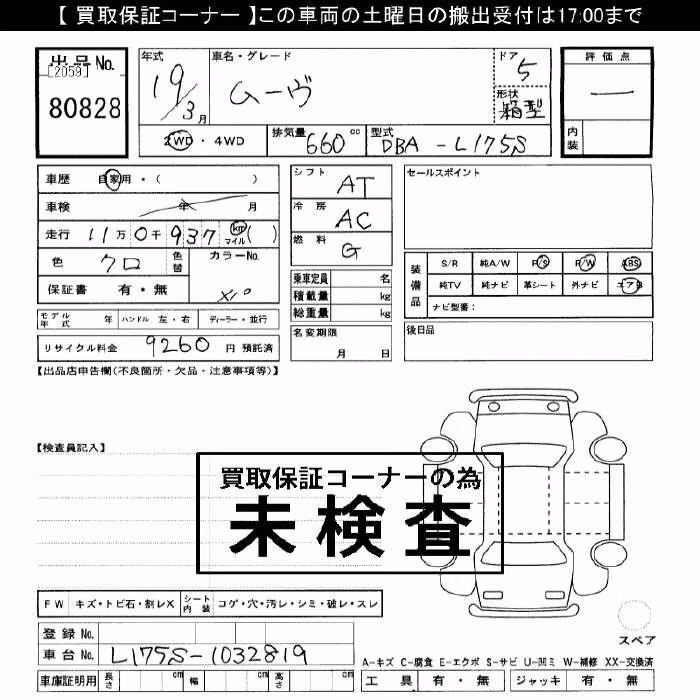 【 買取保証コーナー 】この車両の土曜日の搬出受付は17:00まで
出品No.
[2059]
80828
年式 車名・グレード ドア 5
19/3月 ムーヴ 形状 箱型
2WD・4WD 排気量 660 cc 型式 DBA-L175S
評価点
—
内装
車歴 自家用・( )
車検 年 月
走行 11万0千937 km マイル ( )
色 クロ 色替 カラーNo.
保証書 有・無 X10
モデル年式 年 ハンドル 左・右 ディーラー・並行
リサイクル料金 9260 円 預託済
シフト AT
冷房 AC
燃料 G
乗車定員 名
積載量 kg
総重量 kg
名変期限
月 日
セールスポイント
装備品 S/R 純A/W P/S P/W ABS
純TV 純ナビ 革シート 外ナビ エアB
ナビ型番:
後日品
【出品店申告欄(不良箇所・欠品・注意事項等)】
【検査員記入】
買取保証コーナーの為
未検査
FW キズ・トビ石・割レX シート内装 コゲ・穴・汚レ・シミ・破レ・スレ
登録No.
車台No. L175S-1032819
車庫証明用 長さ cm 幅 cm 高さ cm
スペア
A-キズ C-腐食 E-エクボ S-サビ U-凹ミ W-補修 XX-交換済
工具 有・無 ジャッキ 有・無